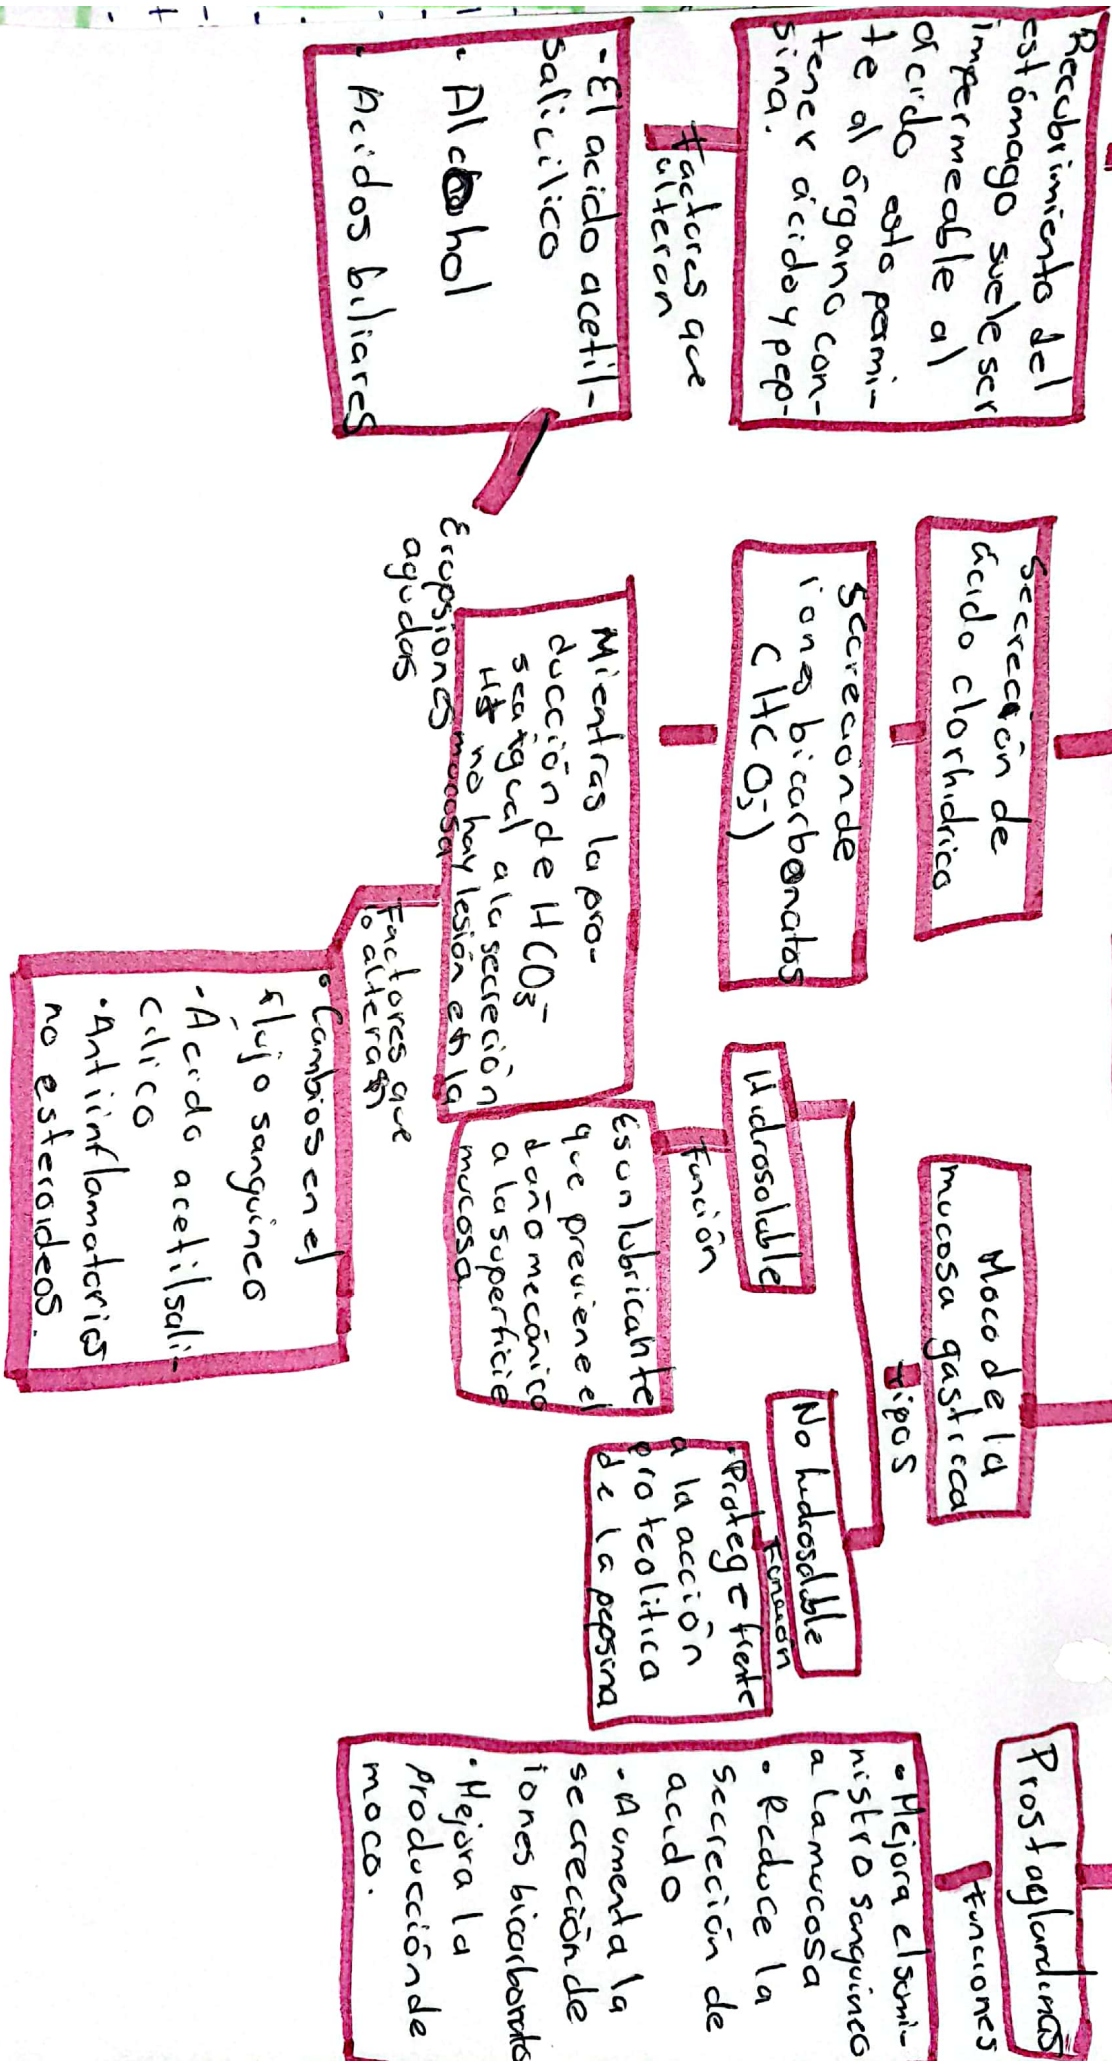 Recubrimiento del
estómago suele ser
impermeable al
ácido esto permi-
te al órgano con-
tener ácido y pep-
sina.
Factores que
alteran
- El acido acetil-
salicílico
· Alcohol
· Acidos biliares
Secreción de
ácido clorhídrico
Secreción de
iones bicarbonatos
(HCO3-)
Mientras la pro-
ducción de HCO3-
sea igual a la secreción
H+ no hay lesión en la
mucosa
Eropsiones
agudas
Factores que
lo alteran
• Cambios en el
flujo sanguíneo
· Ácido acetilsali-
cílico
· Antiinflamatorios
no esteroideos.
Moco de la
mucosa gastrica
tipos
Hidrosoluble
Función
Es un lubricante
que previene el
daño mecánico
a la superficie
mucosa
No hidrosoluble
Función
· Protege frente
a la acción
proteolitica
de la pepsina
Prostaglandinas
Funciones
• Mejora el sumi-
nistro sanguineo
a la mucosa
• Reduce la
secreción de
acido
· Aumenta la
secreción de
iones bicarbonato
· Mejora la
Producción de
moco.